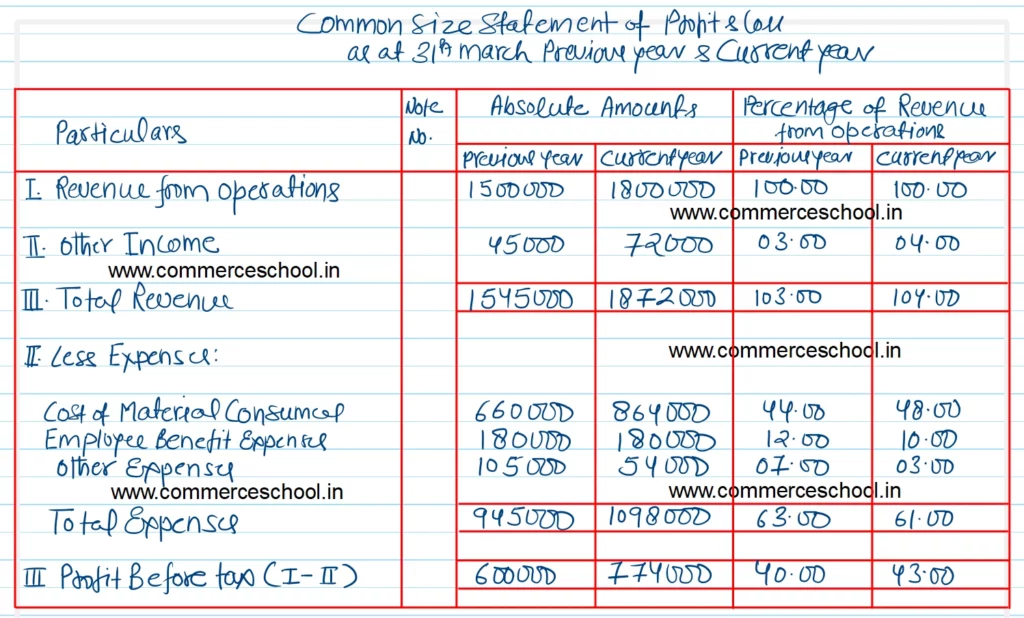 Common Size Statement of Profit & Loss
as at 31th March Previous year & Current year
Particulars Note No. Absolute Amounts Percentage of Revenue from operations
Previous year Current year Previous year Current year
I. Revenue from operations 1500000 1800000 100.00 100.00
www.commerceschool.in
II. Other Income 45000 72000 03.00 04.00
www.commerceschool.in
III. Total Revenue 1545000 1872000 103.00 104.00
II. Less Expenses:
www.commerceschool.in
Cost of Material Consumed 660000 864000 44.00 48.00
Employee Benefit Expenses 180000 180000 12.00 10.00
Other Expenses 105000 54000 07.00 03.00
www.commerceschool.in www.commerceschool.in
Total Expenses 945000 1098000 63.00 61.00
III Profit Before tax (I-II) 600000 774000 40.00 43.00